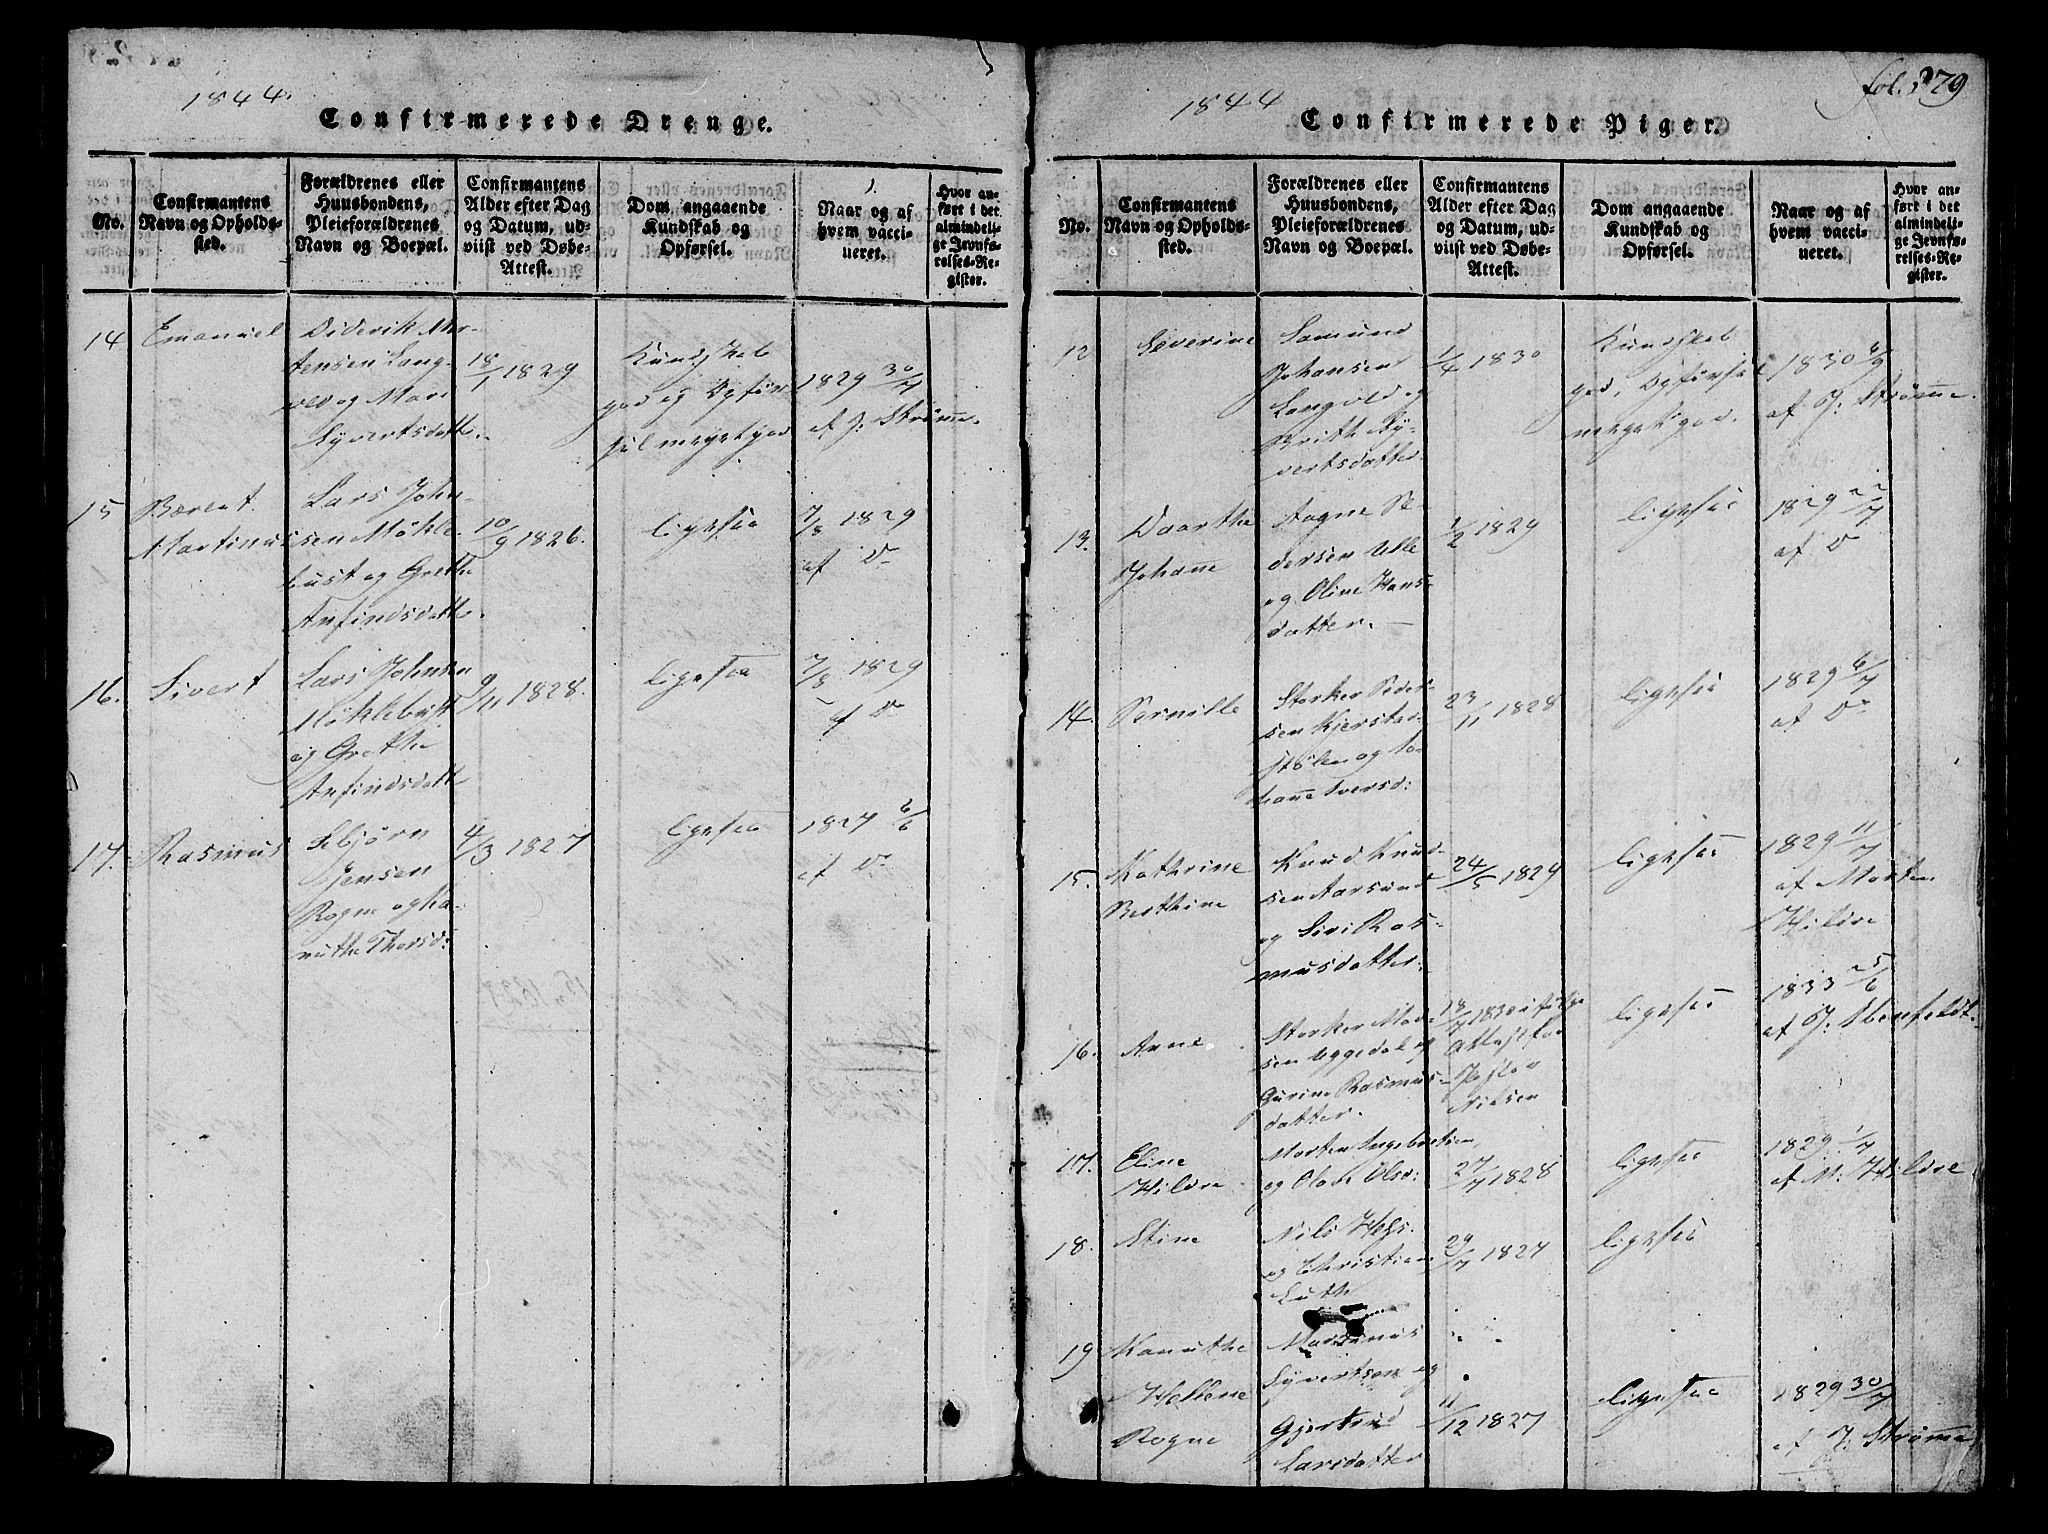 1844.
Confirmerede Drenge.
No.
Confirmantens
Navn og Opholds-
sted.
Forældrenes eller
Huusbondens,
Pleieforældrenes
Navn og Boepæl.
Confirmantens
Alder efter Dag
og Datum, ud-
viist ved Døbe-
Attest.
Dom angaaende
Kundskab og
Opførsel.
Naar og af
hvem vacci-
neret.
Hvor an-
ført i det
almindeli-
ge Jevnfø-
relses-Re-
gister.
14
Emanuel
Diderik Mor-
tensen Lang-
vld og Mari
Syvertsdatt.
18/1 1829
Kundskab
god og Opfør-
sel meget god
1829 30/7
af J. Strømme.
15
Bærent
Martinus
Lars John-
sen Möhle-
bust og Grethe
Anfindsdatt.
10/9 1826.
ligesaa
7/8 1829
af Do
16.
Sivert
Lars Johnsen
Möhlebust
og Grethe
Anfindsdatt
9/11 1828.
ligesaa
7/8 1829
af Do
17.
Rasmus
Sebjörn
Jensen
Rogne og Ka-
nuthe Thorsd:
4/3 1827
ligesaa
1827 6/6
af Do
fol. 279
1844
Confirmerede Piger.
No.
Confirmantens
Navn og Opholds-
sted.
Forældrenes eller
Huusbondens,
Pleieforældrenes
Navn og Boepæl.
Confirmantens
Alder efter Dag
og Datum, ud-
viist ved Døbe-
Attest.
Dom angaaende
Kundskab og
Opførsel.
Naar og af
hvem vacci-
neret.
Hvor an-
ført i det
almindeli-
ge Jevnfø-
relses-Re-
gister.
12
Severine
Samund
Johansen
Langvld og
Brithe Sy-
vertsdatter
1/4 1830
Kundskab
god, Opførsel
meget god.
1830 6/9
af J. Strømme.
13.
Daarthe
Johanne
Aagne Pe-
dersen Ulle
og Oline Hans-
datter.
1/2 1829
ligesaa
1829 22/7
af Do
14.
Pernille
Storker Peder-
sen Kjerstad-
stölen og Jo-
hanne Iversd:
23/11 1828
ligesaa
1829 6/7
af Do
15.
Kathrine
Berthine
Knud Knud-
sen Aarsund
og Siri Ras-
musdatter.
24/5 1829
ligesaa
1829 11/7
af Morten
Hildre
16.
Anne
Storker Mad-
sen Uggedal og
Gurine Rasmus-
datter.
18/7 1830 ifølge
Attest fra
Nielsen
ligesaa
1833 25/6
af J. Abenfeldt.
17.
Eline
Hildre
Morten Ingebretsen
og Olave Olsd:
27/7 1828
ligesaa
1829 1/7
af M: Hildre
18.
Stine
Nils Högs.
og Christiane
Luth
29/7 1827
ligesaa
19
Kanuthe
Hellene
Rogne
Marsinus
Syvertsen og
Gjertrud
Larsdatter
11/12 1827
ligesaa
1829 30/7
af J. Strømme